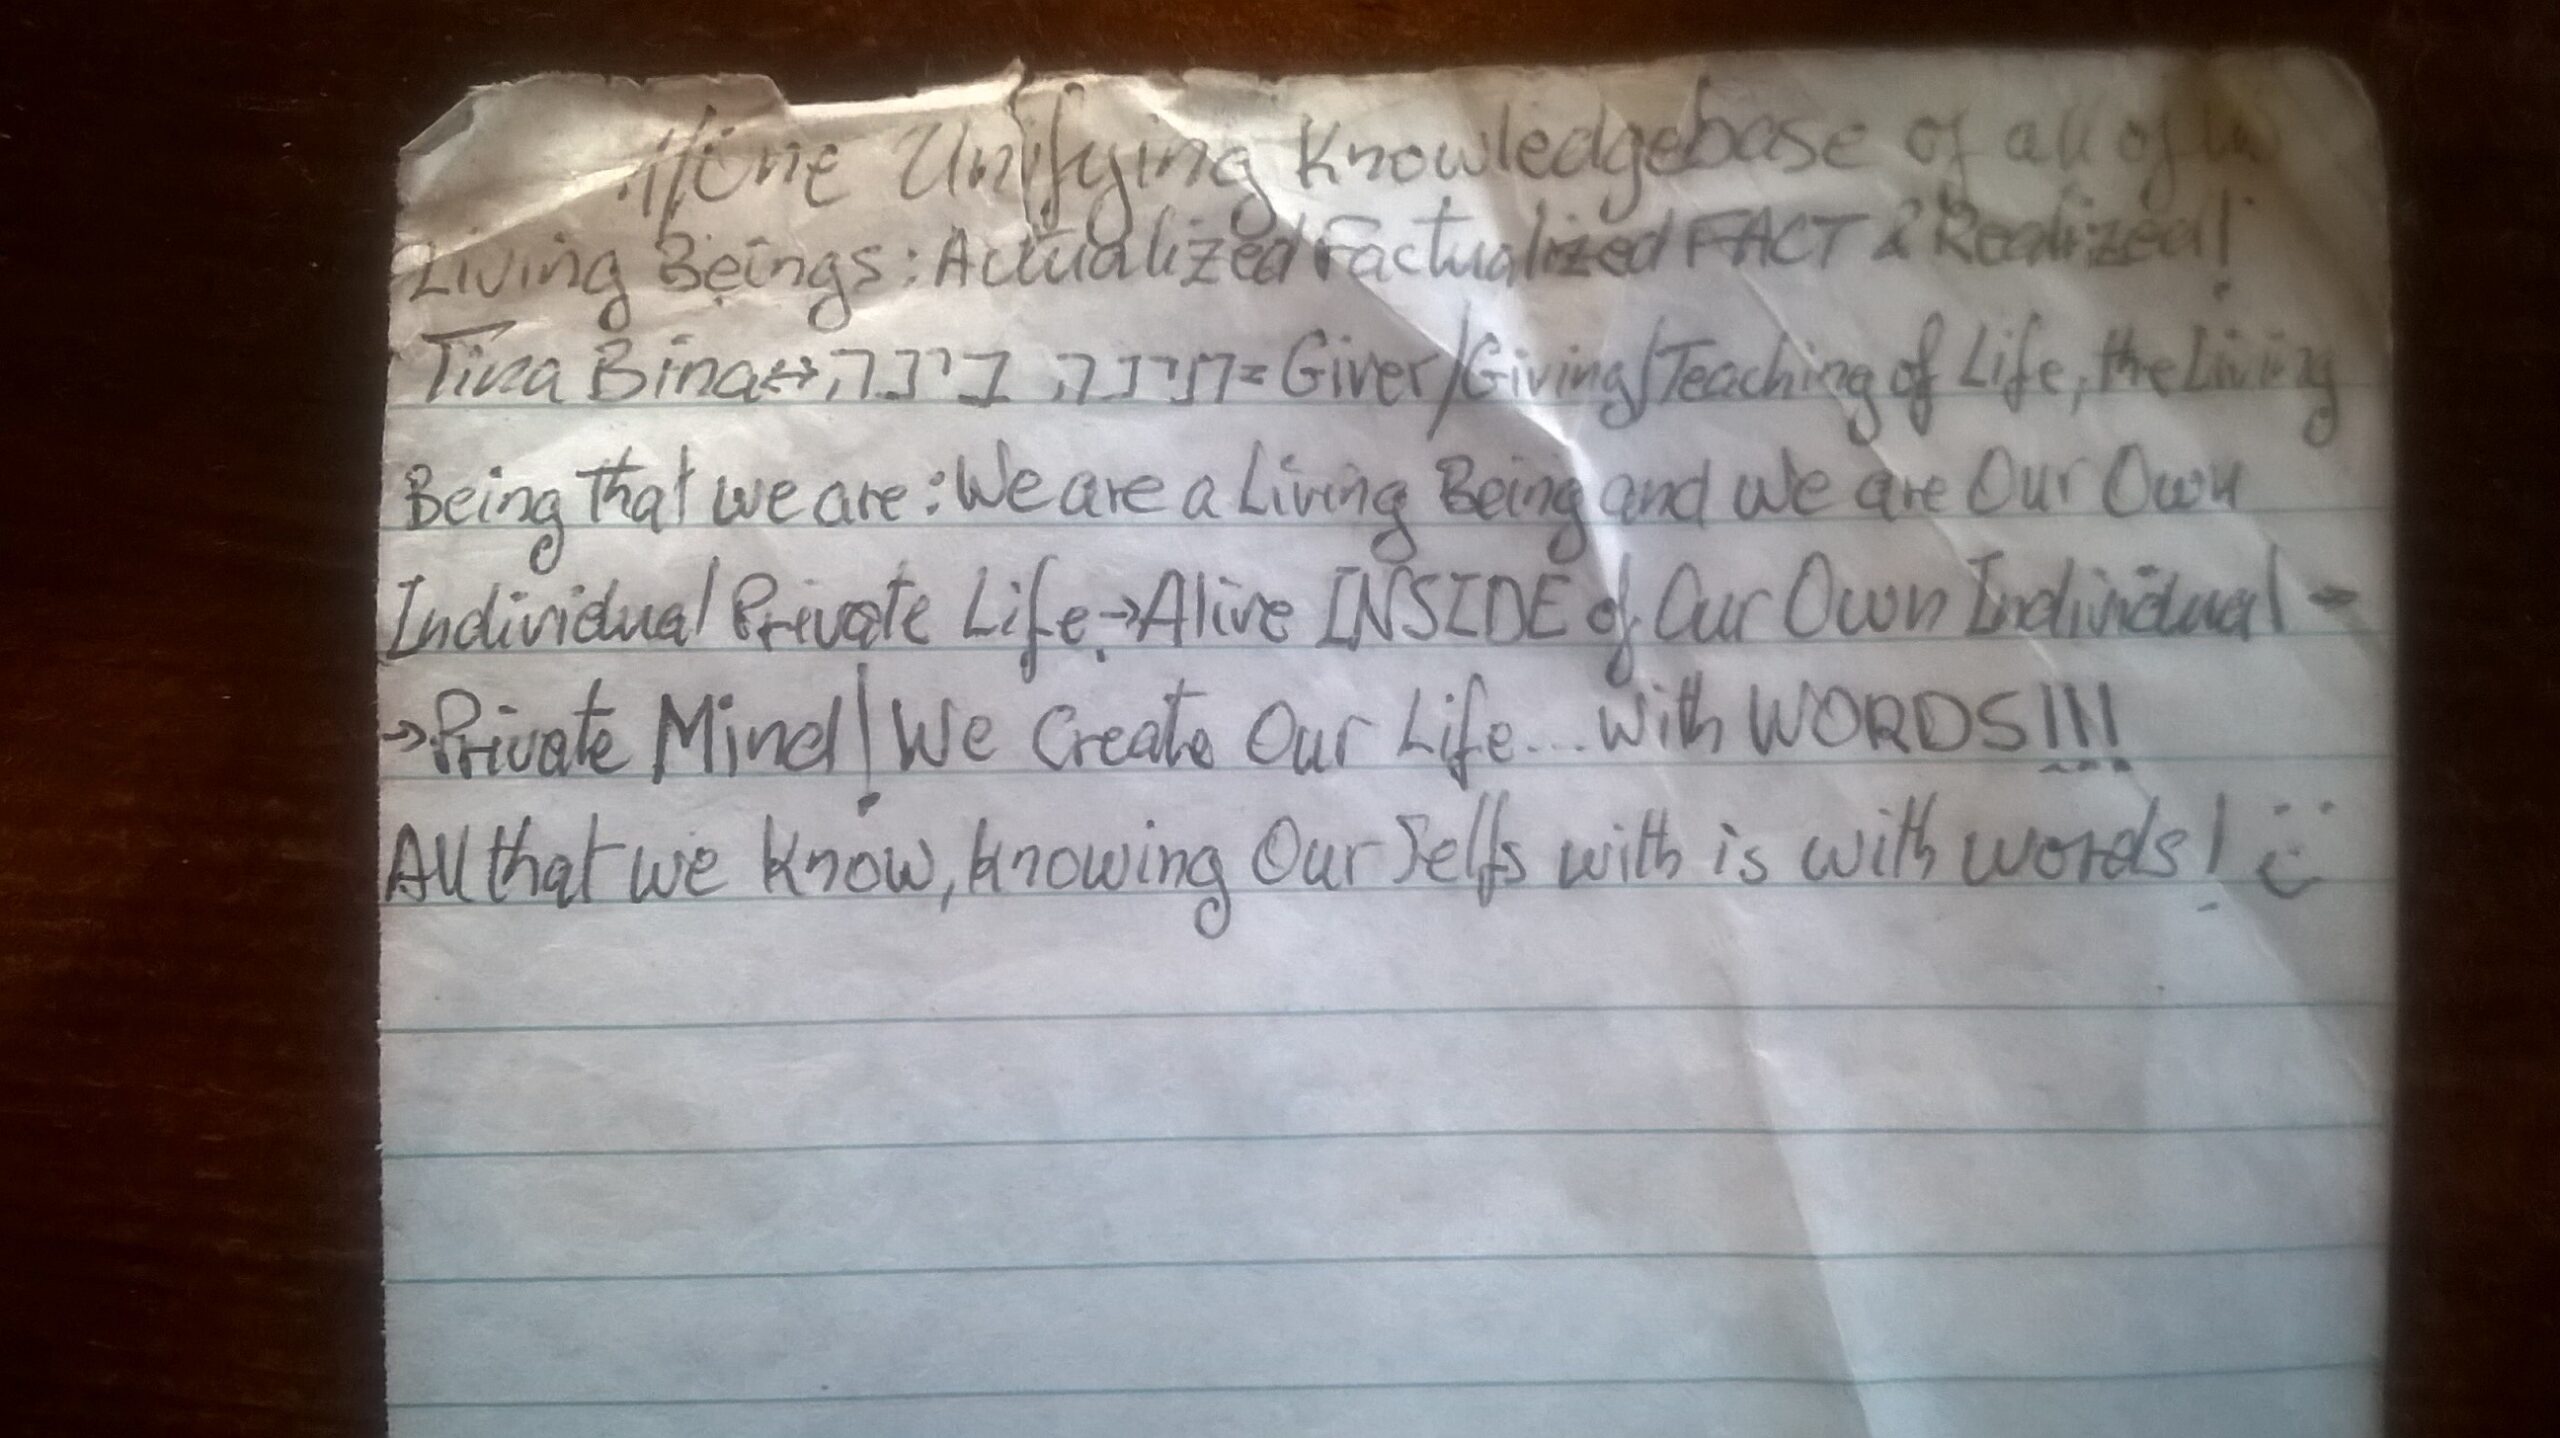 1/One Unifying Knowledgebase of all of
Living Beings: Actualized Factualized FACT & Realized!
Tina Bina↔תינה בינה = Giver/Giving/Teaching of Life, the Living
Being that we are: We are a Living Being and we are Our Own
Individual Private Life; →Alive INSIDE of Our Own Individual →
→Private Mind! We Create Our Life... with WORDS!!!
All that we know, knowing Our Selfs with is with words! :)